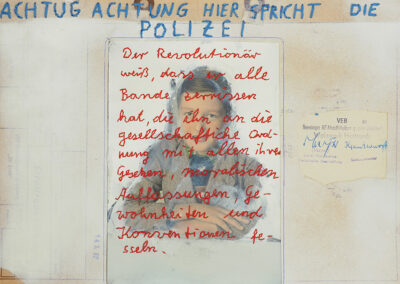 ACHTUG ACHTUNG HIER SPRICHT DIE
POLIZEI
Der Revolutionär
weiß, dass er alle
Bande zerrissen
hat, die ihn an die
gesellschaftliche Ord-
nung mit allen ihren
Gesetzen moralischen
Auffassungen, Ge-
wohnheiten und
Konventionen fe-
sseln.
VEB